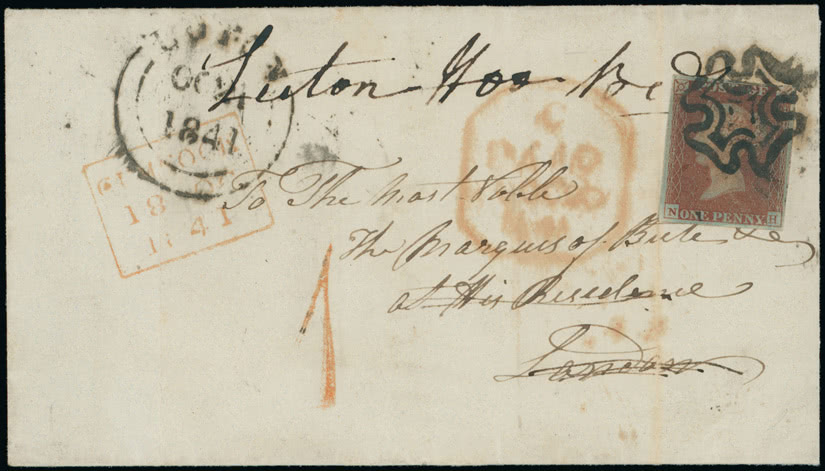 1841
Luton Hoo
To The Most Noble
The Marquis of Bute &c
at His Residence
London
18
1841
C
1
N ONE PENNY H